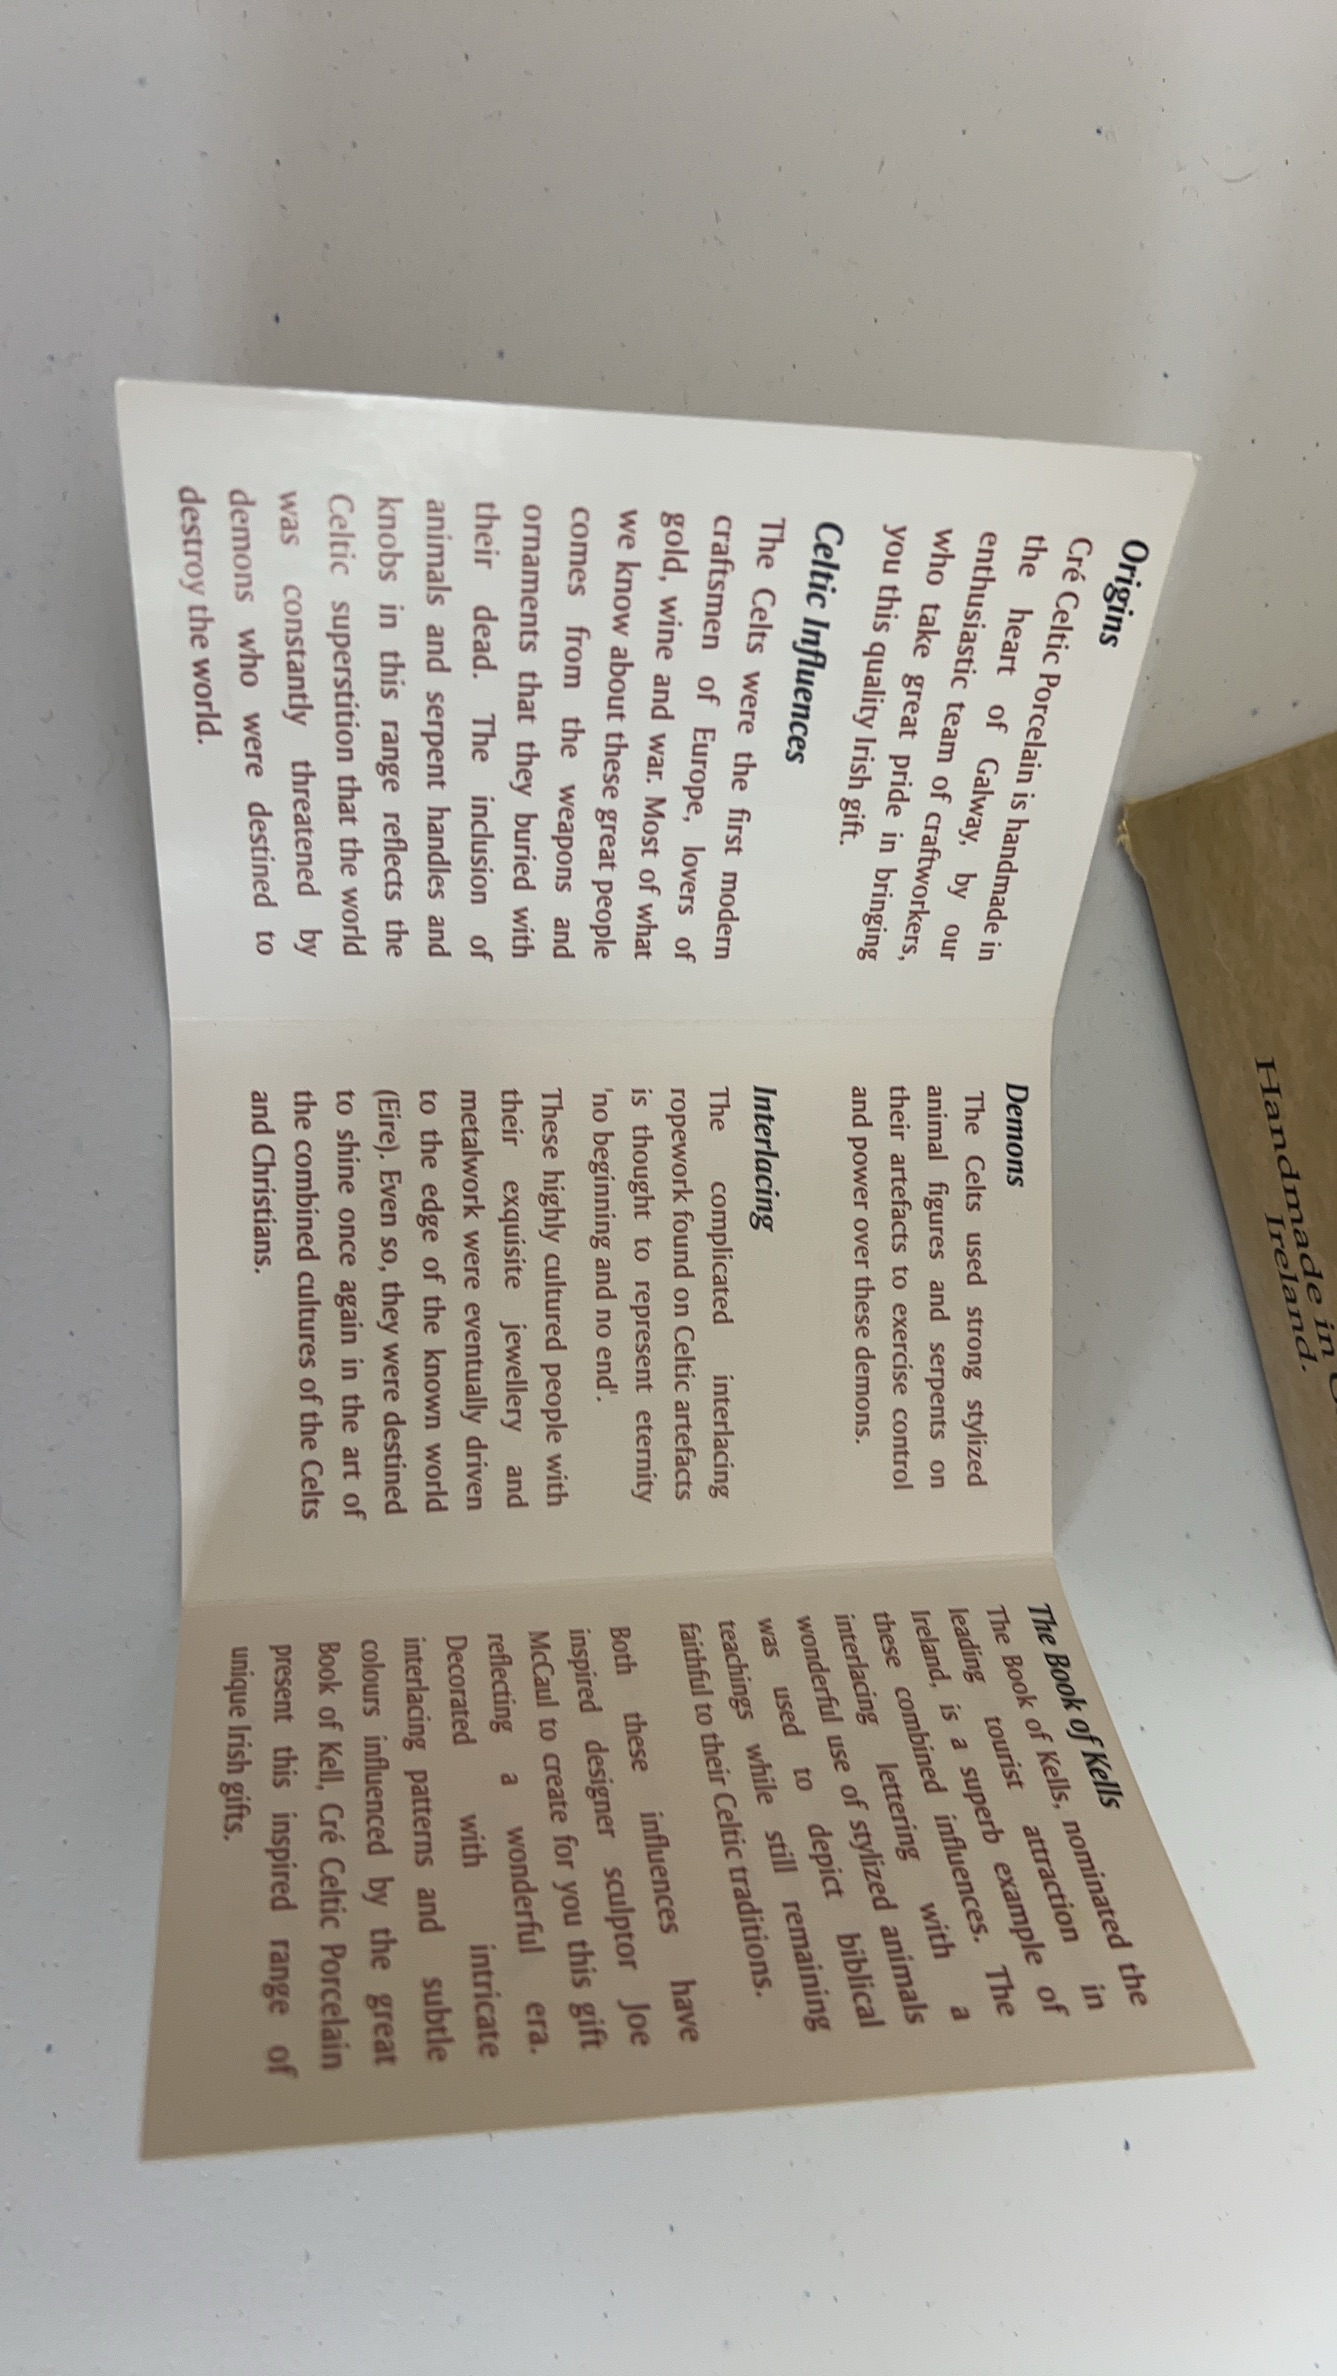 Origins
Cré Celtic Porcelain is handmade in
the heart of Galway, by our
enthusiastic team of craftworkers,
who take great pride in bringing
you this quality Irish gift.
Celtic Influences
The Celts were the first modern
craftsmen of Europe, lovers of
gold, wine and war. Most of what
we know about these great people
comes from the weapons and
ornaments that they buried with
their dead. The inclusion of
animals and serpent handles and
knobs in this range reflects the
Celtic superstition that the world
was constantly threatened by
demons who were destined to
destroy the world.
Demons
The Celts used strong stylized
animal figures and serpents on
their artefacts to exercise control
and power over these demons.
Interlacing
The complicated interlacing
ropework found on Celtic artefacts
is thought to represent eternity
'no beginning and no end'.
These highly cultured people with
their exquisite jewellery and
metalwork were eventually driven
to the edge of the known world
(Eire). Even so, they were destined
to shine once again in the art of
the combined cultures of the Celts
and Christians.
The Book of Kells
The Book of Kells, nominated the
leading tourist attraction in
Ireland, is a superb example of
these combined influences. The
interlacing lettering with a
wonderful use of stylized animals
was used to depict biblical
teachings while still remaining
faithful to their Celtic traditions.
Both these influences have
inspired designer sculptor Joe
McCaul to create for you this gift
reflecting a wonderful era.
Decorated with intricate
interlacing patterns and subtle
colours influenced by the great
Book of Kell, Cré Celtic Porcelain
present this inspired range of
unique Irish gifts.
Handmade in
Ireland.